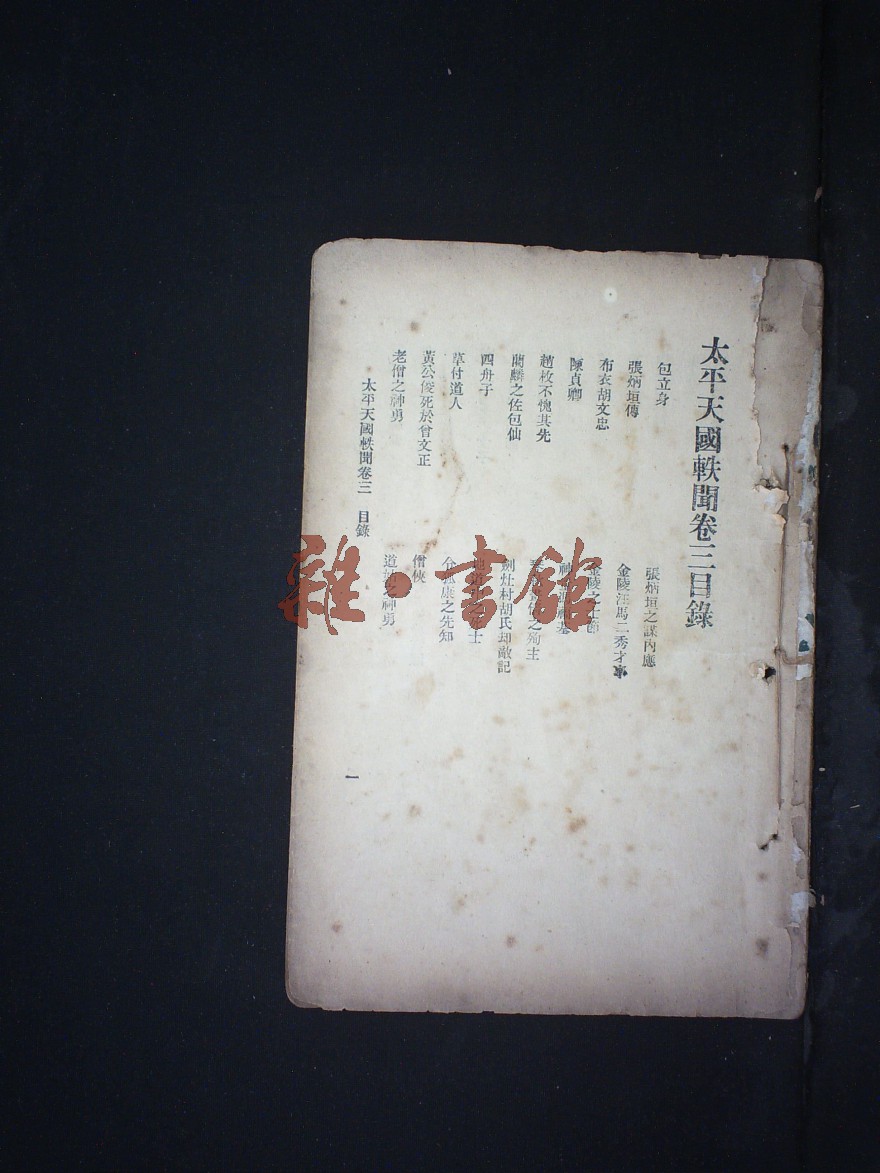 太平天國軼聞卷三目錄
包立身
張炳垣之謀內應
張炳垣傳
金陵汪馬二秀才
布衣胡文忠
金陵之
陳貞卿
趙枚不愧其先
之殉主
蘭麟之佐包仙
劍灶村胡氏却敵記
四舟子
士
草付道人
康之先知
黃公俊死於曾文正
僧俠
老僧之神勇
道站之神勇
太平天國軼聞卷三 目錄
一
雜·書館